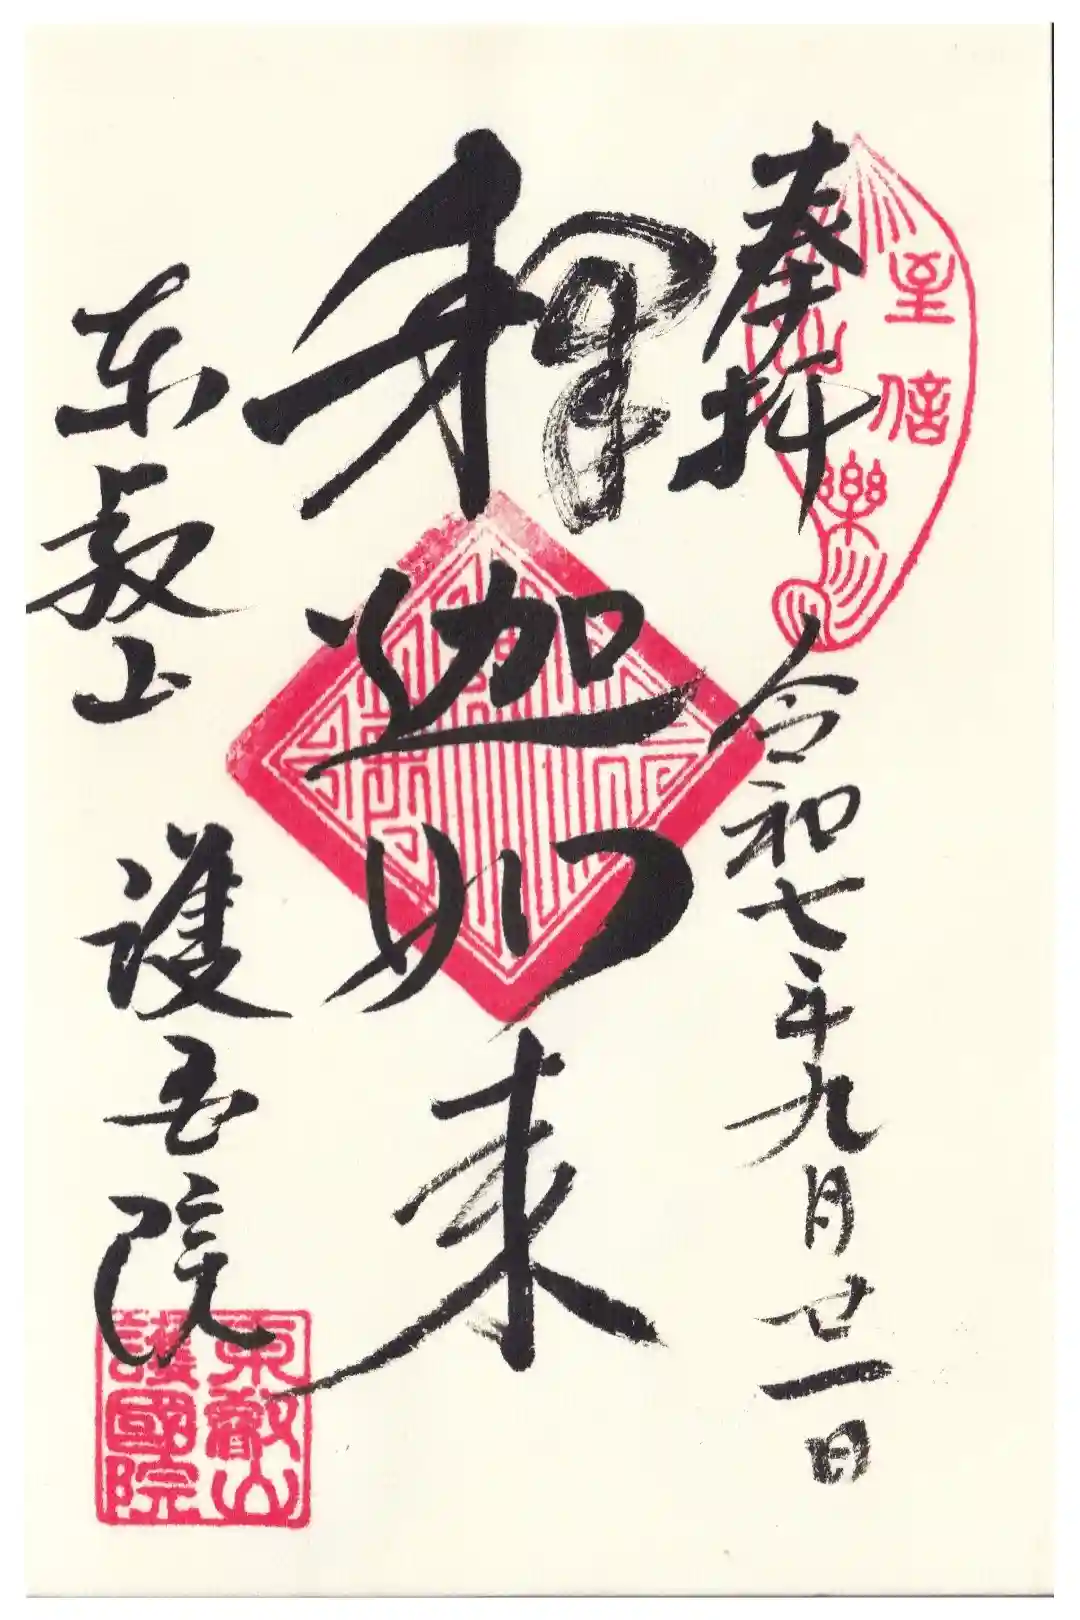 奉拝
令和七年九月廿一日
釋迦如来
東叡山
護国院
至信
樂
東叡山
護國院